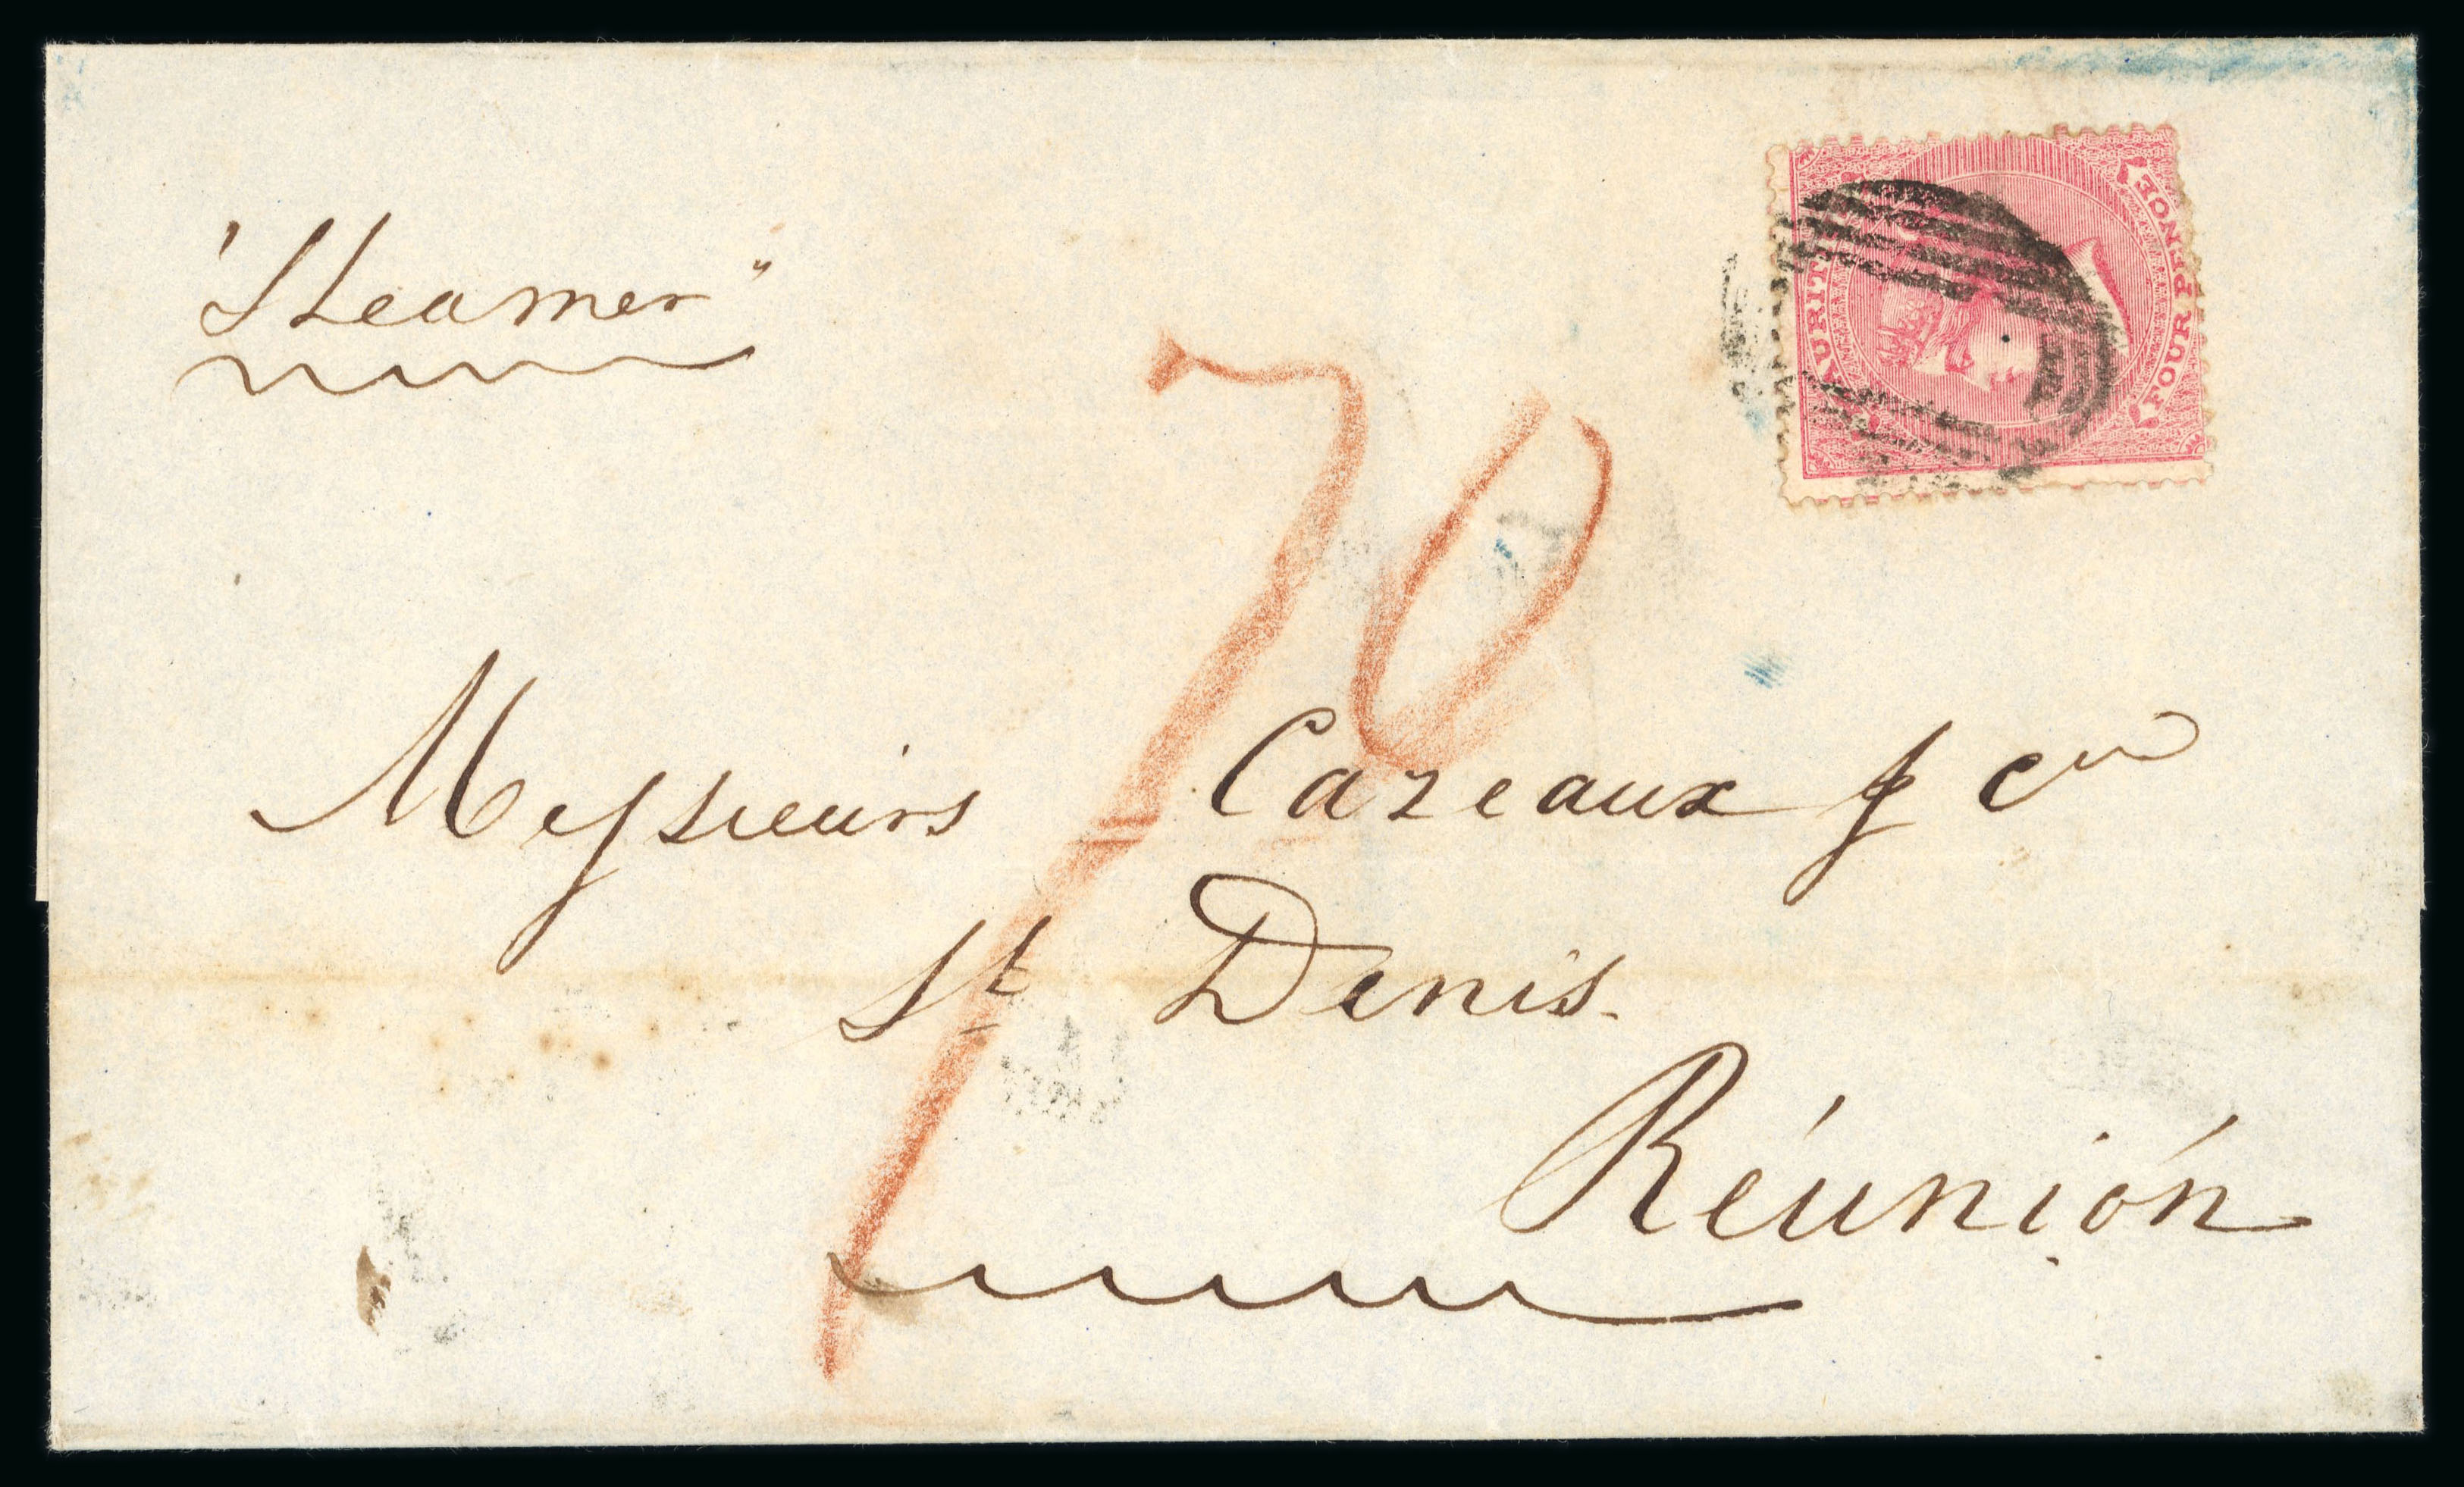 "Steamer"
MAURIT
FOUR PENCE
70
Messieurs Cazeaux & Cie
St Denis.
Réunión